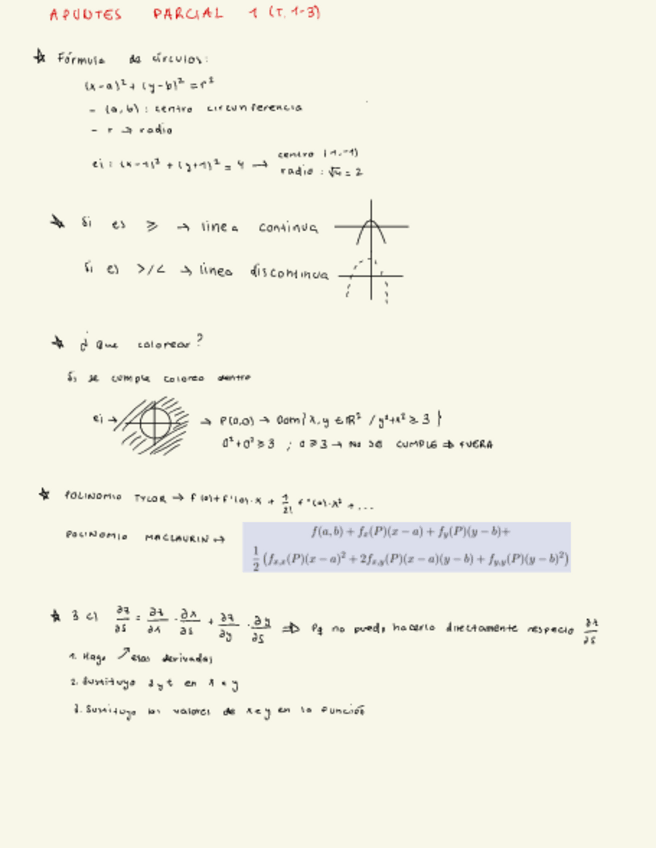 APUNTES PARCIAL 1 (T. 1-3)
☆ Fórmula de círculos:
(x-a)² + (y-b)² = r²
- (a,b) : centro circunferencia
- r → radio
ej : (x-1)² + (y+1)² = 4 → centro (1,-1)
radio : √4 = 2
☆ Si es ≥ → linea continua
Si es >/< → linea discontinua
☆ ¿ Que colorear?
Si se cumple coloreo dentro
ej → → P(0,0) → Dom{x,y ∈ ℝ² / y²+x² ≥ 3}
0²+0² ≥ 3 ; 0 ≥ 3 → No SE CUMPLE ⇒ FUERA
☆ POLINOMIO TYLOR → f(0)+f'(0)·x + 1/2! f''(0)·x² + ...
POLINOMIO MACLAURIN → f(a,b) + fₓ(P)(x − a) + f_y(P)(y − b)+
1/2 (f_{x,x}(P)(x − a)² + 2f_{x,y}(P)(x − a)(y − b) + f_{y,y}(P)(y − b)²)
☆ 3 c) ∂z/∂s = ∂z/∂x · ∂x/∂s + ∂z/∂y · ∂y/∂s ⇒ Pq no puedo hacerlo directamente respecto ∂z/∂s
1. Hago esas derivadas
2. Sustituyo s y t en x e y
3. Sustituyo los valores de x e y en la función